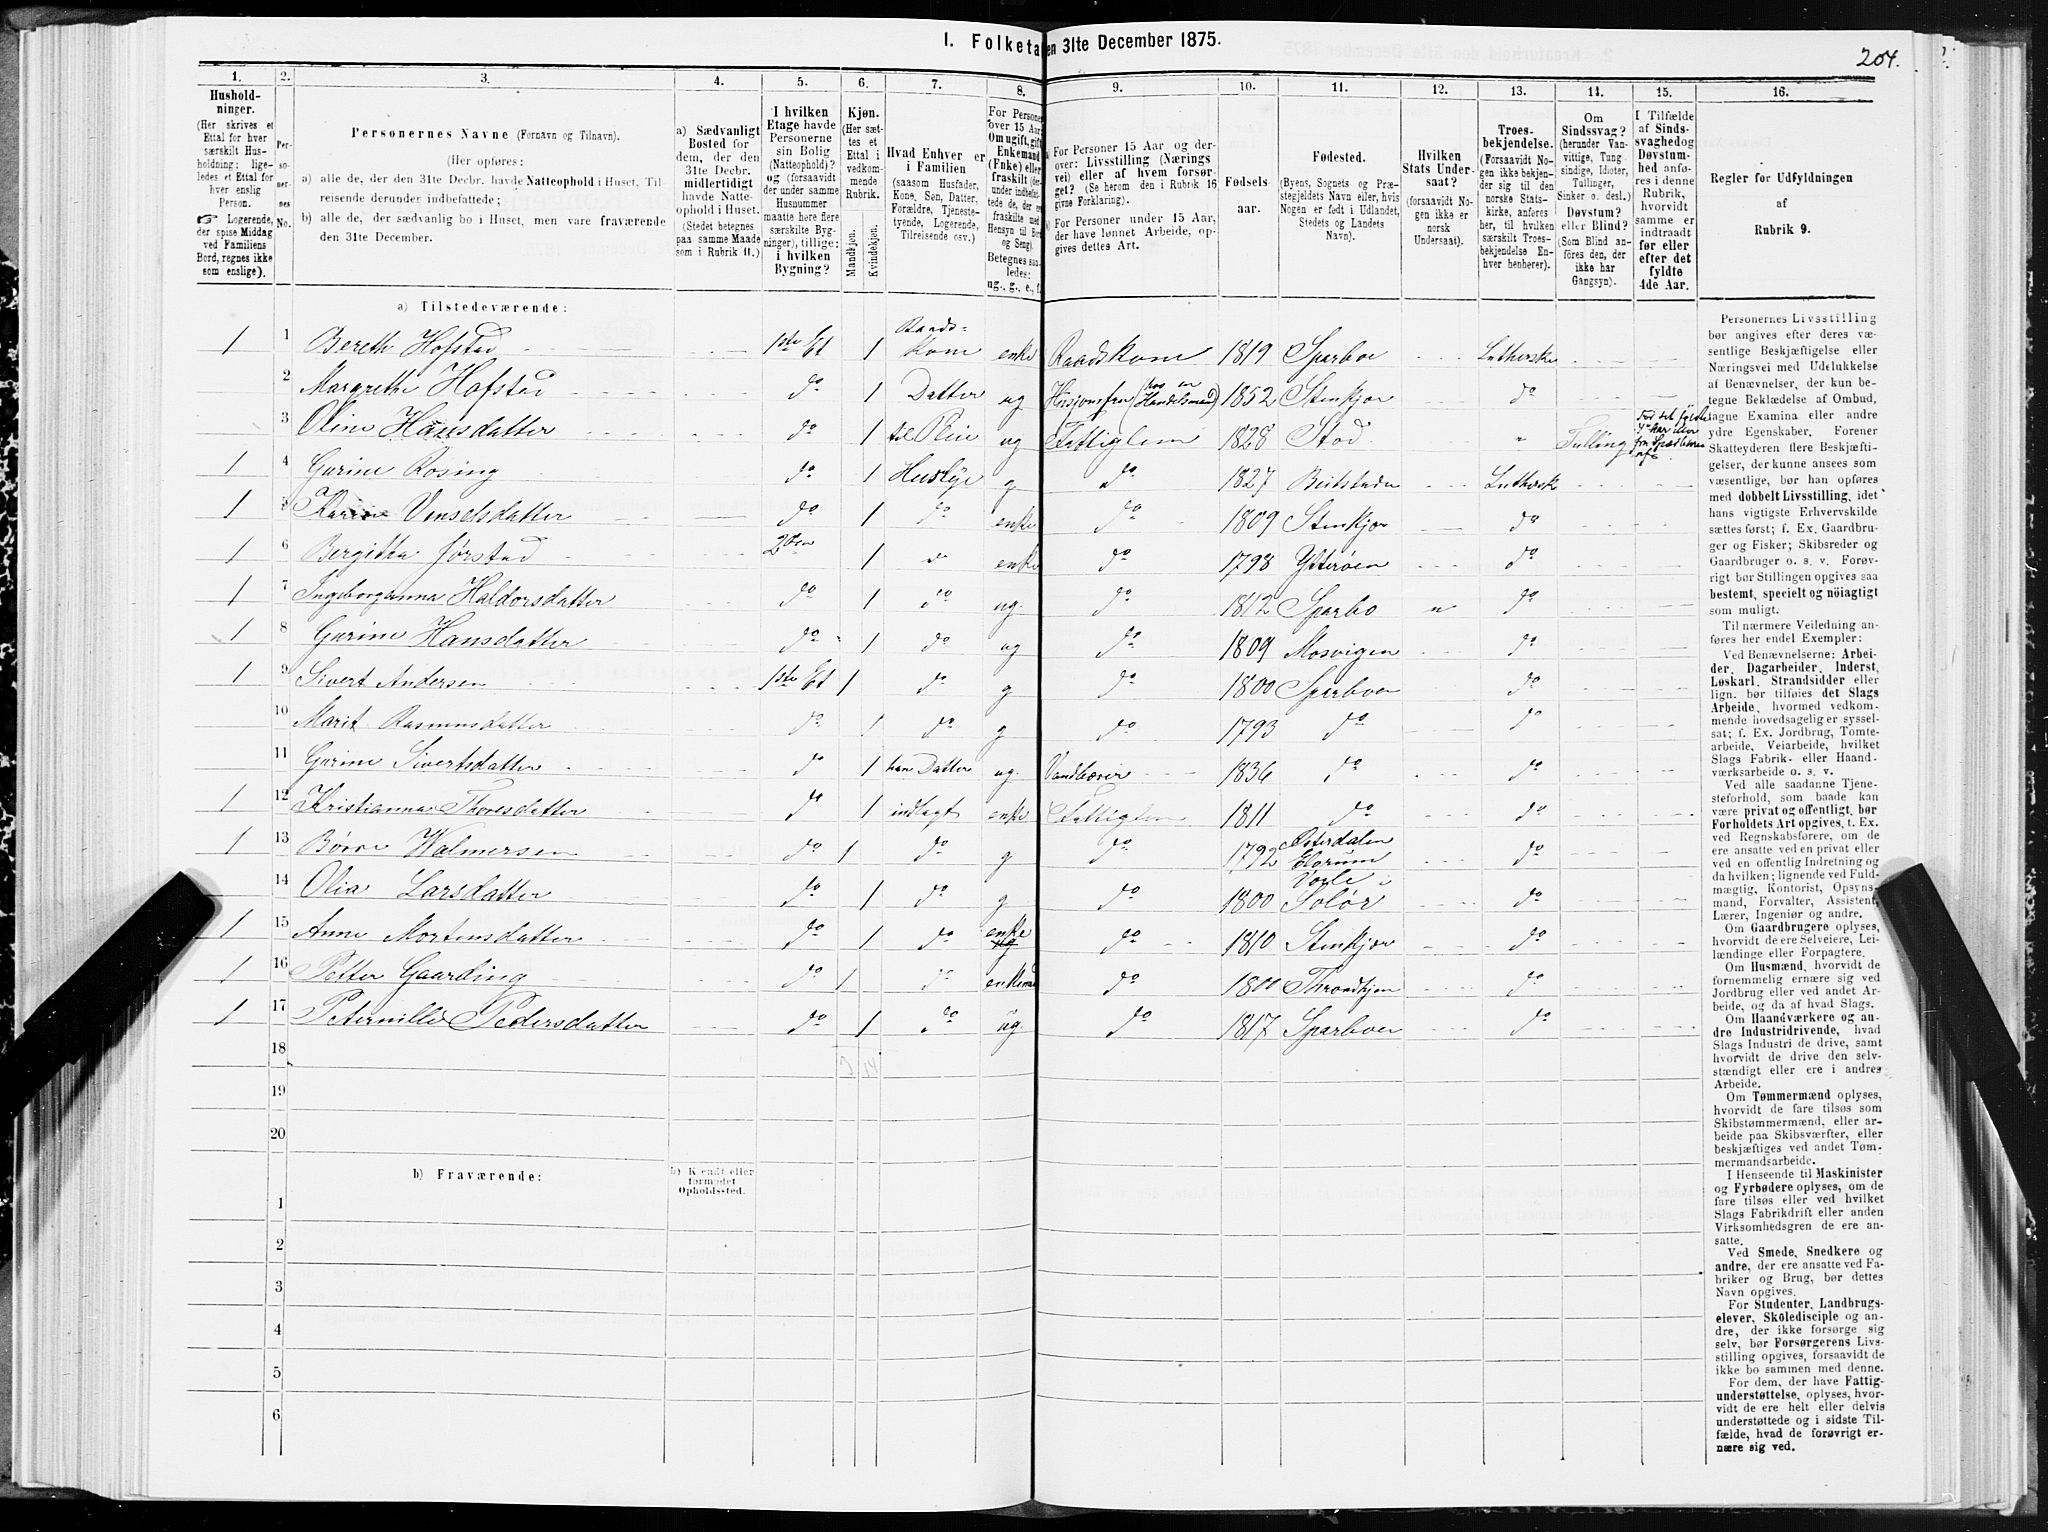 I. Folketa en 31te December 1875.
204.
1. 2. 3. 4. 5. 6. 7. 8. 9. 10. 11. 12. 13. 14. 15. 16.
Hushold-
ninger.
(Her skrives et
Ettal for hver
særskilt Hus-
holdning; lige-
ledes et Ettal for
hver enslig
Person.
Logerende,
der spise Middag
ved Familiens
Bord, regnes ikke
som enslige).
Per-
so-
ner-
nes
No.
Personernes Navne (Fornavn og Tilnavn).
(Her opføres:
a) alle de, der den 31te Decbr. havde Natteophold i Huset, Til-
reisende derunder indbefattede;
b) alle de, der sædvanlig bo i Huset, men vare fraværende
den 31te December.
a) Sædvanligt
Bosted for
dem, der den
31te Decbr.
midlertidigt
havde Natte-
ophold i Huset.
(Stedet betegnes
paa samme Maade
som i Rubrik 11.)
I hvilken
Etage havde
Personerne
sin Bolig
(Natteophold)?
og (forsaavidt
der under samme
Husnummer
maatte høre flere
særskilte Byg-
ninger), tillige:
i hvilken
Bygning?
Kjøn.
(Her sæt-
tes et
Ettal i
vedkom-
mende
Rubrik.
Mandkjøn.
Kvindekjøn.
Hvad Enhver er
i Familien
(saasom Husfader,
Kone, Søn, Datter,
Forældre, Tjeneste-
tyende, Logerende,
Tilreisende osv.)
For Persone
over 15 Aar
Om ugift, gift
Enkemand
(Enke) eller
fraskilt (der-
under indbefat-
tede de, der er
fraskilte med
Hensyn til Bo
og Seng).
Betegnes saa-
ledes:
ug., g., e., f.
For Personer 15 Aar og der-
over: Livsstilling (Nærings
vei) eller af hvem forsør-
get? (Se herom den i Rubrik 16
givne Forklaring).
For Personer under 15 Aar,
der have lønnet Arbeide, op-
gives dettes Art.
Fødsels-
aar.
Fødested.
(Byens, Sognets og Præ-
stegjeldets Navn eller, hvis
Nogen er født i Udlandet,
Stedets og Landets
Navn).
Hvilken
Stats Under-
saat?
(forsaavidt No-
gen ikke er
norsk
Undersaat).
Troes-
bekjendelse.
(Forsaavidt No-
gen ikke bekjen-
der sig til den
norske Stats-
kirke, anføres
her, til hvilken
særskilt Troes-
bekjendelse En-
hver henhører).
Om
Sindssvag?
(herunder Van-
vittige, Tung-
sindige, Idioter,
Tullinger,
Sinker o. desl.)
Døvstum?
eller Blind?
(Som Blind an-
føres den, der
ikke har
Gangsyn).
I Tilfælde
af Sinds-
svaghed og
Døvstum-
hed anfø-
res i denne
Rubrik,
hvorvidt
samme er
indtraadt
før eller
efter det
fyldte
4de Aar.
Regler for Udfyldningen
af
Rubrik 9.
a) Tilstedeværende:
1 1 Bereth Hofstad 1ste Et 1 Raads-Kone enke Raadskone 1819 Sparboe Lutherske
2 Margrethe Hofstad do 1 Datter ug (hos en Handelsmand) 1852 Stenkjær do
3 Oline Hansdatter do 1 ug Fattiglem 1828 Stod " Tulling
1 4 Gurine Rosing do 1 g do 1827 Beitstaden Luthersk
1 5 Karen Venselsdatter do 1 do enke do 1809 Stenkjær do
1 6 Bergitha Jørstad 2den 1 do enke do 1798 Ytterøen do
1 7 Ingeborganna Haldorsdatter do 1 do ug. do 1812 Sparbo " do
1 8 Gurine Hansdatter do 1 do ug do 1809 Mosvigen do
1 9 Sivert Andersen 1ste Et 1 do g do 1800 Sparboen do
10 Marit Rasmusdatter do 1 do g do 1793 do do
11 Gurine Sivertsdatter do 1 Datter ug. Vandbærer 1836 do do
1 12 Kristianna Thoresdatter do 1 indlagt enke Fattiglem 1811 do do
1 13 Børre Walmersen do 1 do g do 1792 Østerdalen Elvrum do
14 Olia Larsdatter do 1 do g do 1800 Solør do
1 15 Anne Mortensdatter do 1 do enke ug do 1810 Stenkjær do
1 16 Petter Gaarding do 1 do do 1800 Throndhjem do
1 17 Peternille Pedersdatter do 1 do ug do 1817 Sparboen do
18
3 14
19
20
b) Fraværende:
b) Kjendt eller
formodet
Opholdssted.
1
2
3
4
5
6
Personernes Livsstilling
bør angives efter deres væ-
sentlige Beskjæftigelse eller
Næringsvei med Udelukkelse
af Benævnelser, der kun be-
tegne Beklædelse af Ombud,
tagne Examina eller andre
ydre Egenskaber. Forener
Skatteyderen flere Beskjæfti-
gelser, der kunne ansees som
væsentlige, bør han opføres
med dobbelt Livsstilling, idet
hans vigtigste Erhvervskilde
sættes først; f. Ex. Gaardbru-
ger og Fisker; Skibsreder og
Gaardbruger o. s. v. Forøv-
rigt bør Stillingen opgives saa
bestemt, specielt og nöiagtigt
som muligt.
Til nærmere Veiledning an-
føres her endel Exempler:
Ved Benævnelserne: Arbei-
der, Dagarbeider, Inderst,
Løskarl, Strandsidder eller
lign. bør tilføies det Slags
Arbeide, hvormed vedkom-
mende hovedsagelig er syssel-
sat; f. Ex. Jordbrug, Tomte-
arbeide, Veiarbeide, hvilket
Slags Fabrik- eller Haand-
værksarbeide o. s. v.
Ved alle saadanne Tjene-
steforhold, som baade kan
være privat og offentligt, bør
Forholdets Art opgives, t. Ex.
ved Regnskabsførere, om de
ere ansatte ved en privat eller
ved en offentlig Indretning og
da hvilken; lignende ved Fuld-
mægtig, Kontorist, Opsyns-
mand, Forvalter, Assistent,
Lærer, Ingeniør og andre.
Om Gaardbrugere oplyses,
hvorvidt de ere Selveiere, Lei-
lændinge eller Forpagtere.
Om Husmænd, hvorvidt de
fornemmelig ernære sig ved
Jordbrug eller ved andet Ar-
beide, og da af hvad Slags.
Om Haandværkere og an-
dre Industridrivende, hvad
Slags Industri de drive, samt
hvorvidt de drive den selv-
stændigt eller ere i andres
Arbeide.
Om Tømmermænd oplyses,
hvorvidt de fare tilsøs som
Skibstømmermænd, eller ar-
beide paa Skibsværfter, eller
beskjæftiges ved andet Tøm-
mermandsarbeide.
I Henseende til Maskinister
og Fyrbødere oplyses, om de
fare tilsøs eller ved hvilket
Slags Fabrikdrift eller anden
Virksomhedsgren de ere an-
satte.
Ved Smede, Snedkere og
andre, der ere ansatte ved Fa-
briker og Brug, bør dettes
Navn opgives.
For Studenter, Landbrugs-
elever, Skoledisciple og an-
dre, der ikke forsørge sig
selv, bør Forsørgerens Livs-
stilling opgives, forsaavidt de
ikke bo sammen med denne.
For dem, der have Fattig-
understøttelse, oplyses, hvor-
vidt de ere helt eller delvis
understøttede og i sidste Til-
fælde, hvad de forøvrigt er-
nære sig ved.